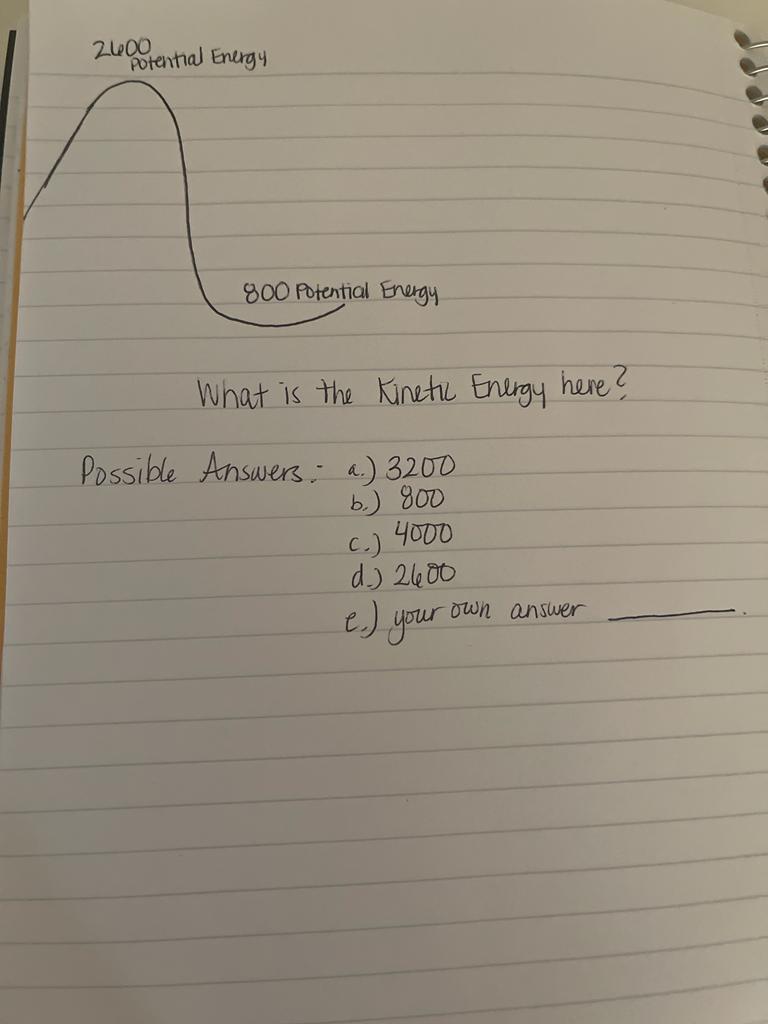 2600
Potential Energy
800 Potential Energy
What is the Kinetic Energy here?
Possible Answers:- a.) 3200
b.) 800
c.) 4000
d.) 2600
e.) your own answer ________.